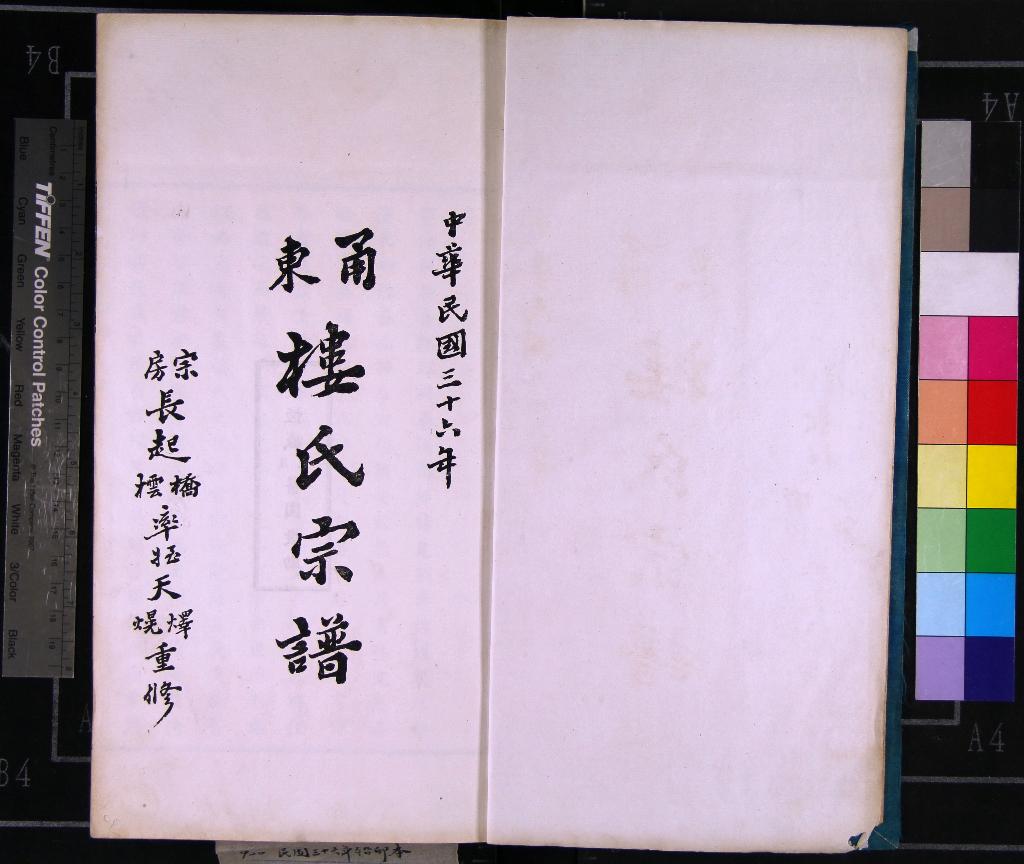 中華民國三十六年
甬東樓氏宗譜
宗房長起橋樰率姪天燡熀重修
TIFFEN Color Control Patches
Centimetres
Blue
Cyan
Green
Yellow
Red
Magenta
White
3/Color
Black
B4
A4
B4
A4
民國三十六年鉛印本